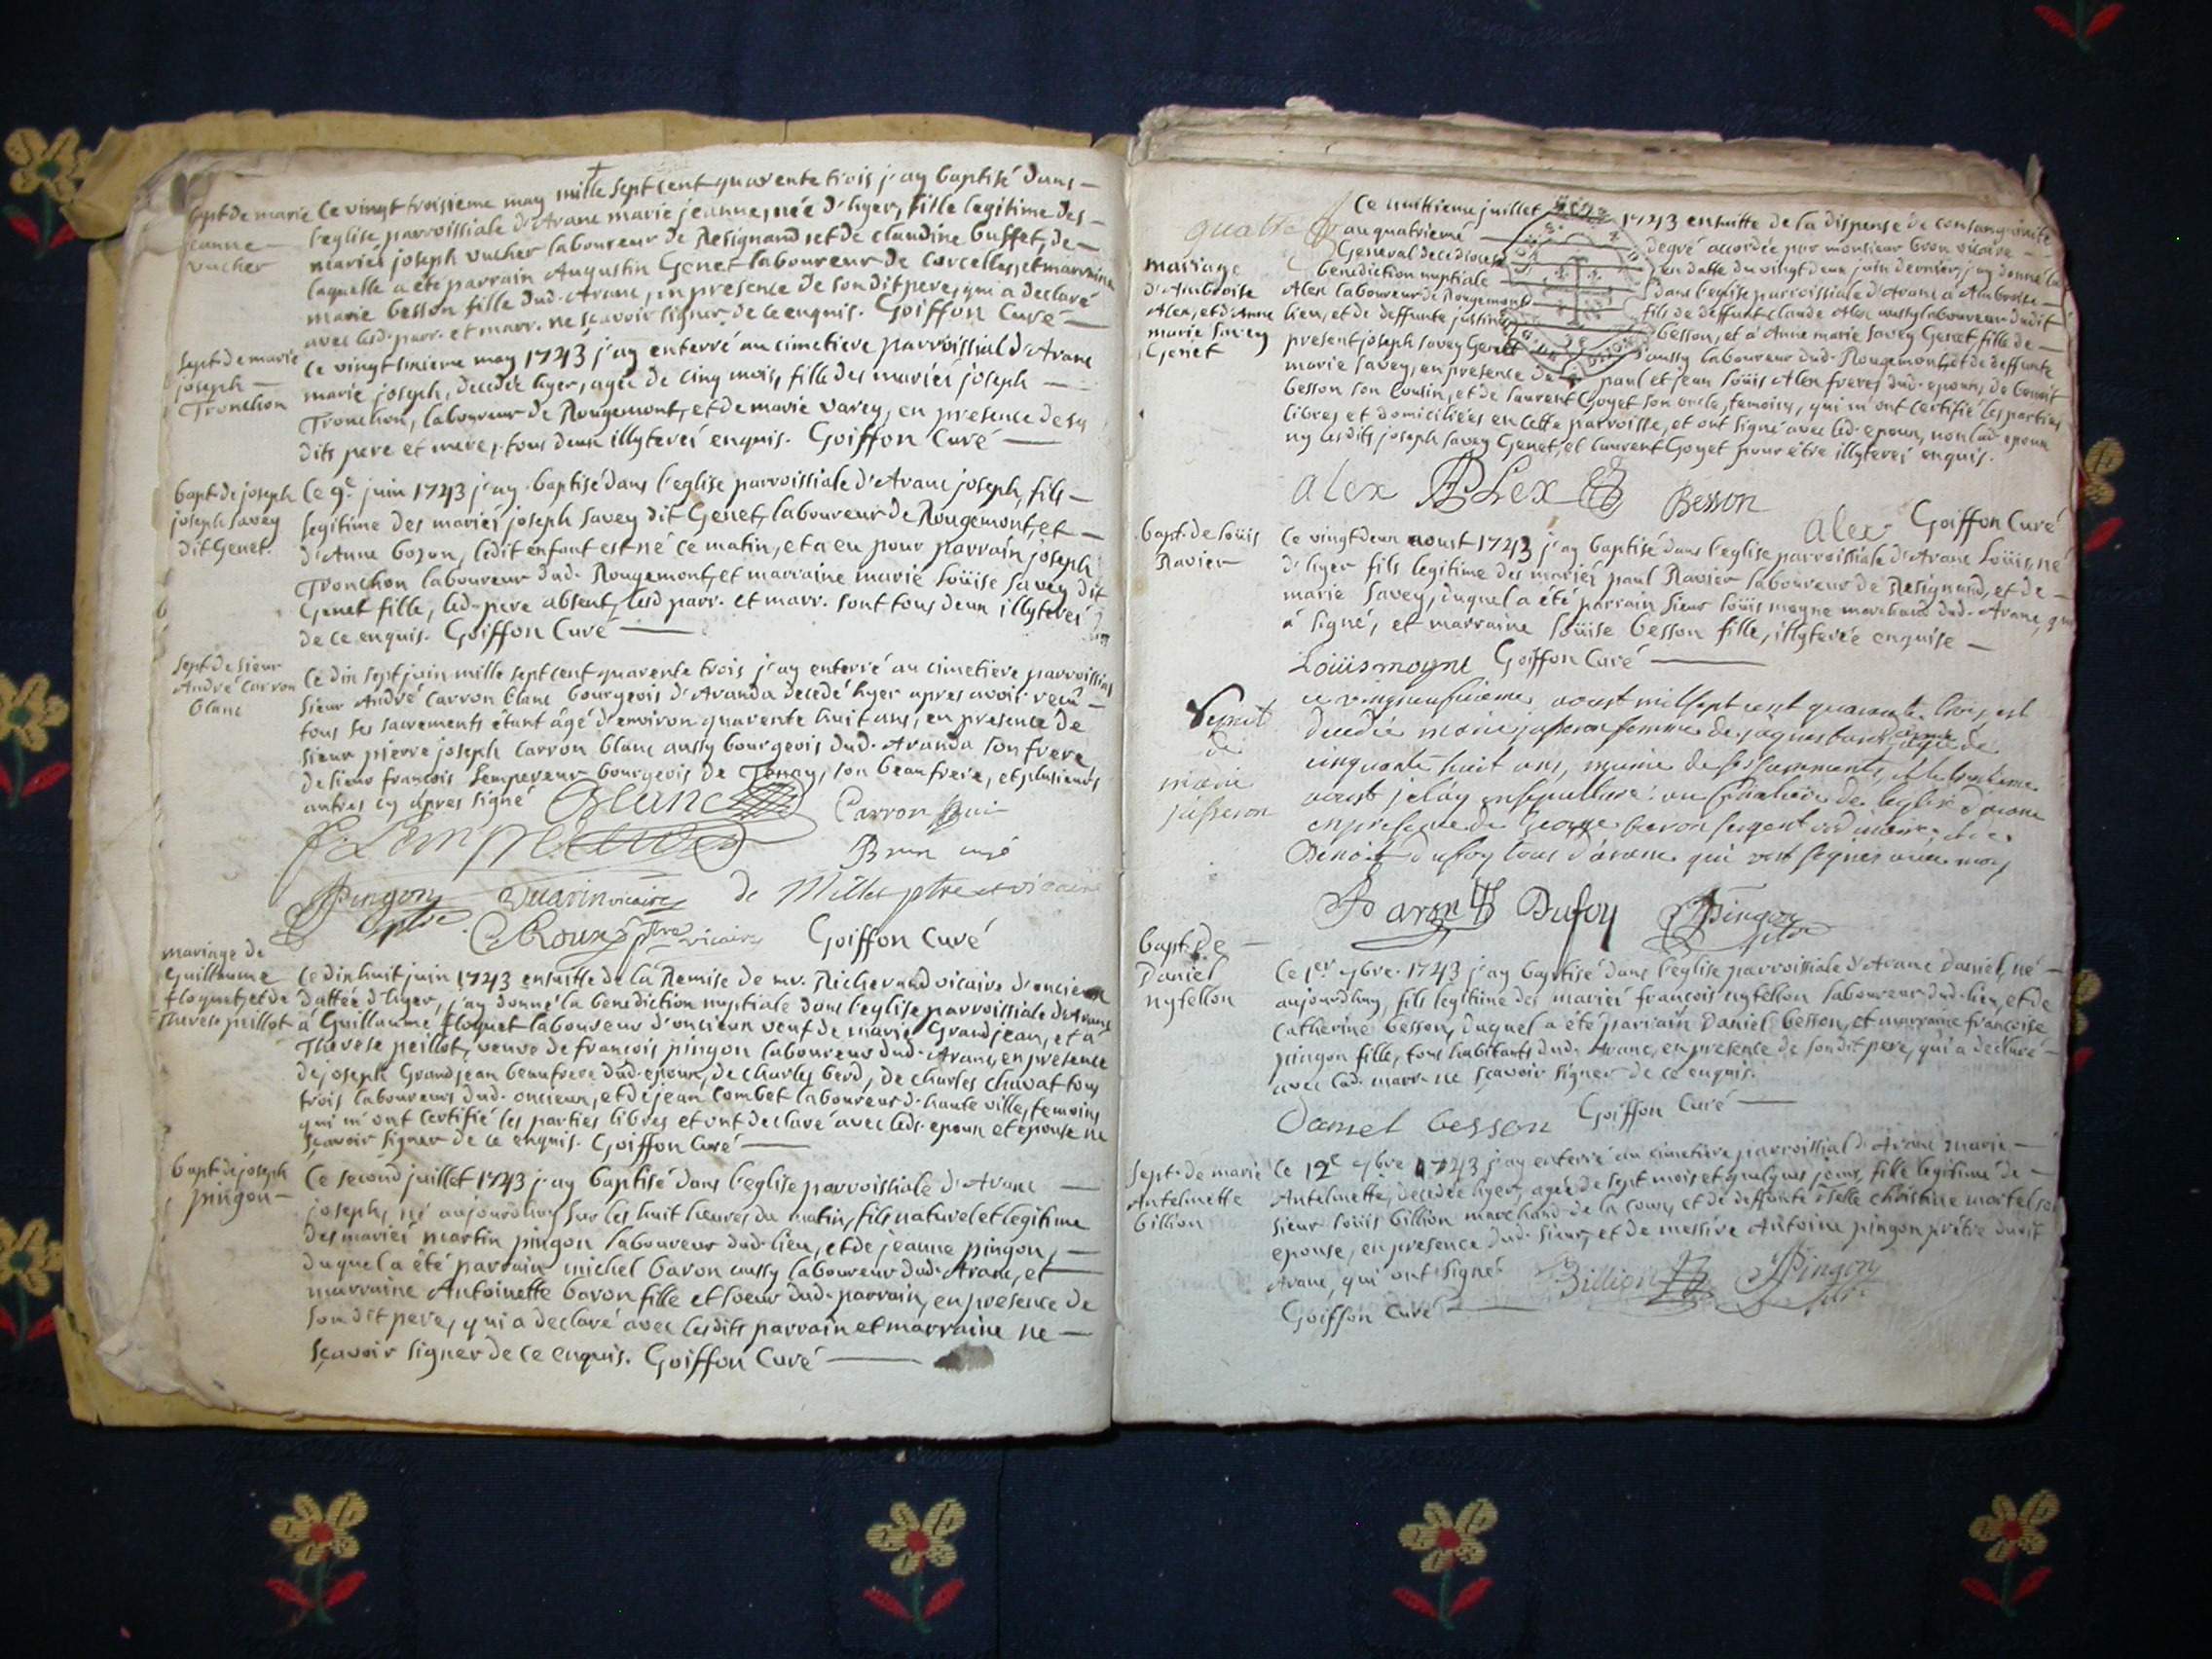 bapt de marie
jeanne
vucher
Ce vingt troisieme may mille sept cent quarente trois j'ay baptisé dans
l'eglise parroissiale d'Aranc marie jeanne, née d'hyer, fille legitime des
mariés joseph vucher laboureur de Resignand et de claudine buffet, de
laquelle a été parrain Augustin Genet laboureur de Corcelles, et marraine
marie besson fille dud. Aranc, en presence de son dit pere, qui a declaré
avec lesd. parr. et marr. ne sçavoir signer de ce enquis. Goiffon Curé
sept. de marie
joseph
Tronchon
Ce vingt sixieme may 1743 j'ay enterré au cimetiere parroissial d'Aranc
marie joseph, decedée hyer, agée de cinq mois, fille des mariés joseph
Tronchon, laboureur de Rougemont, et de marie varey, en presence de ses
dits pere et mere, tous deux illyterés enquis. Goiffon Curé
bapt. de joseph
joseph savey
dit Genet.
Ce 9e juin 1743 j'ay baptisé dans l'eglise parroissiale d'Aranc joseph, fils
legitime des mariés joseph savey dit Genet, laboureur de Rougemont, et
d'Anne bozon, ledit enfant est né ce matin, et a eu pour parrain joseph
Tronchon laboureur dud. Rougemont, et marraine marie Loüise savey dit
Genet fille, led. pere absent, lesd parr. et marr. sont tous deux illyterés
de ce enquis. Goiffon Curé
sept. de sieur
André Carron
blanc
Ce dix sept juin mille sept cent quarente trois j'ay enterré au cimetiere parroissial
sieur André Carron blanc bourgeois d'Aranda decedé hyer apres avoir reçu
tous ses sacrements étant âgé d'environ quarente huit ans, en presence de
sieur pierre joseph Carron blanc aussy bourgeois dud. Aranda son frere
de sieur françois Lempereur bourgeois de Tenay, son beaufrere, et plusieurs
autres cy apres signé Blanc Carron
Lempereur
Brun curé
Pingon ptre Quarin vicaire de Millet ptre et vicaire
Roux ptre vicaire Goiffon Curé
mariage de
Guillaume
floquet, et de
Therese peillot
Ce dix huit juin 1743 ensuitte de la Remise de mr. Richerand vicaire d'oncieux
dattée d'hyer, j'ay donné la benediction nuptiale dans l'eglise parroissiale d'Aranc
à Guillaume floquet laboureur d'oncieux veuf de marie Grandjean, et à
Therese peillot, veuve de françois pingon laboureur dud. Aranc, en presence
de joseph Grandjean beaufrere dud. epoux, de charles berd, de charles chavat tous
trois laboureurs dud. oncieux, et de jean Combet laboureur d'haute ville, temoins
qui m'ont certifié les parties libres et ont declaré avec leds. epoux et epouse ne
sçavoir signer de ce enquis. Goiffon Curé
bapt. de joseph
pingon
Ce second juillet 1743 j'ay baptisé dans l'eglise parroissiale d'Aranc
joseph, né aujourdhuy sur les huit heures du matin, fils naturel et legitime
des mariés martin pingon laboureur dud. lieu, et de jeanne pingon,
duquel a été parrain michel baron aussy laboureur dud. Aranc, et
marraine Antoinette baron fille et soeur dud. parrain, en presence de
son dit pere, qui a declaré avec lesdits parrain et marraine ne
sçavoir signer de ce enquis. Goiffon Curé
quatre
mariage
d'Ambroise
Alex, et d'Anne
marie Savey
Genet
Ce huittieme juillet 1743 ensuitte de la dispense de consanguinité
au quatrieme degré accordée par monsieur bron vicaire
General de ce diocese en datte du vingt deux juin dernier, j'ay donné la
benediction nuptiale dans l'eglise parroissiale d'Aranc à Ambroise
Alex laboureur de Rougemont fils de deffunt claude Alex aussy laboureur dudit
lieu, et de deffunte justine besson, et à Anne marie savey Genet fille de
present joseph savey Genet aussy laboureur dud. Rougemont, et de deffunte
marie savey, en presence de paul et jean Loüis Alex freres dud. epoux, de benoit
besson son cousin, et de laurent Goyet son oncle, temoins, qui m'ont certifié les parties
libres et domiciliées en cette parroisse, et ont signé avec led. epoux, non lad. epouse
ny lesdits joseph savey Genet, et laurent Goyet pour être illyterés enquis.
alex Alex Besson
alex Goiffon Curé
bapt. de Loüis
Ravier
Ce vingt deux aoust 1743 j'ay baptisé dans l'eglise parroissiale d'Aranc Loüis, né
d'hyer fils legitime des mariés paul Ravier laboureur de Resignand, et de
marie savey, duquel a été parrain sieur Loüis moyne marchand dud. Aranc, qui
a signé, et marraine Loüise besson fille, illyterée enquise
Loüis moyne Goiffon Curé
de
marie
jasseron
ce vingneufvieme aoust mil sept cent quarante trois est
decedée marie jasseron femme de jaques baron agée de
cinquante huit ans, munie de ses sacrements, et le trentieme
aoust je l'ay ensepulturé au cimetiere de l'eglise d'aranc
en presence de baron sergent ordinaire et de
Benoit dufoy tous d'aranc qui ont signés avec moy
Baron Dufoy Pingon ptre
bapt. de
Daniel
nyfellon
Ce 1er 7bre. 1743 j'ay baptisé dans l'eglise parroissiale d'Aranc Daniel, né
aujourdhuy, fils legitime des mariés françois nyfellon laboureur dud. lieu, et de
Catherine besson, duquel a été parrain Daniel besson, et marraine françoise
pingon fille, tous habitants dud. Aranc, en presence de son dit pere, qui a declaré
avec lad. marr. ne sçavoir signer de ce enquis.
Daniel besson Goiffon Curé
sept. de marie
Antelmette
billion
Ce 12e 7bre 1743 j'ay enterré au cimetiere parroissial d'Aranc marie
Antelmette, decedée hyer, agée de sept mois et quelques jours, fille legitime de
sieur Loüis billion marchand de la Cour, et de deffunte Dselle christine martel son
epouse, en presence dud. sieur, et de messire Antoine pingon prêtre dudit
Aranc, qui ont signé Billion Pingon ptre
Goiffon Curé